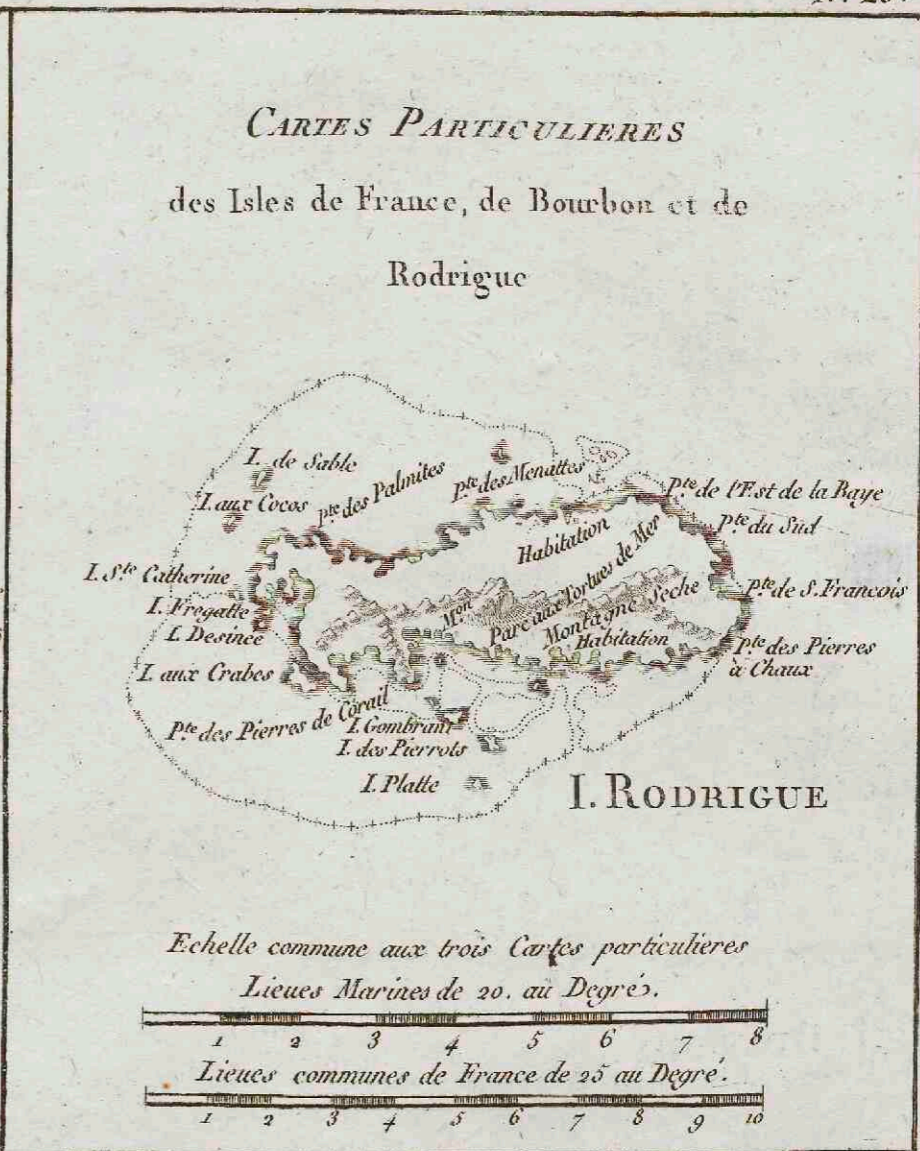 CARTES PARTICULIERES
des Isles de France, de Bourbon et de
Rodrigue
I. de Sable
I. aux Cocos
Pte. des Palmites
Pte. des Menattes
Pte. de l'Est de la Baye
Pte. du Sud
Habitation
I. Ste. Catherine
I. Fregatte
I. Desinée
Mon
Parc aux Tortues de Mer
Montagne Seche
Habitation
Pte. de S. Francois
I. aux Crabes
Pte. des Pierres
à Chaux
Pte. des Pierres de Corail
I. Gombrani
I. des Pierrots
I. Platte
I. RODRIGUE
Echelle commune aux trois Cartes particulieres
Lieues Marines de 20. au Degré.
1 2 3 4 5 6 7 8
Lieues communes de France de 25 au Degré.
1 2 3 4 5 6 7 8 9 10